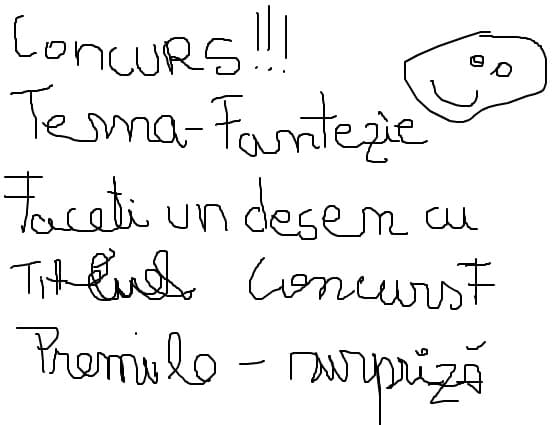 CONCURS!!!
Tema-Fantezie
Faceti un desen cu
Titlul ConcursF
Premiile - surpriză